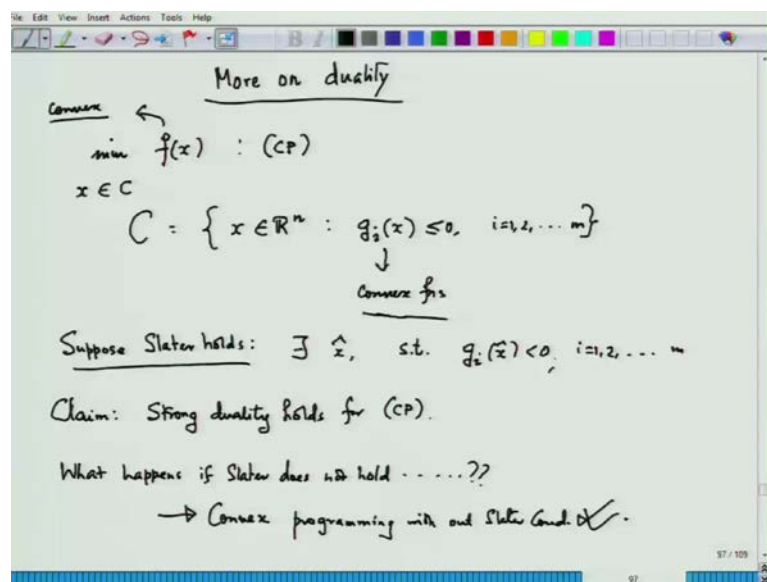 File Edit View Insert Actions Tools Help
More on duality
Convex
min f(x) : (CP)
x ∈ C
C = { x ∈ ℝⁿ : gᵢ(x) ≤ 0, i=1,2, ... m}
Convex fns
Suppose Slater holds: ∃ x̂, s.t. gᵢ(x̂) < 0, i=1,2, ... m
Claim: Strong duality holds for (CP).
What happens if Slater does not hold ......??
→ Convex programming with out Slater Cond.
97 / 109
97